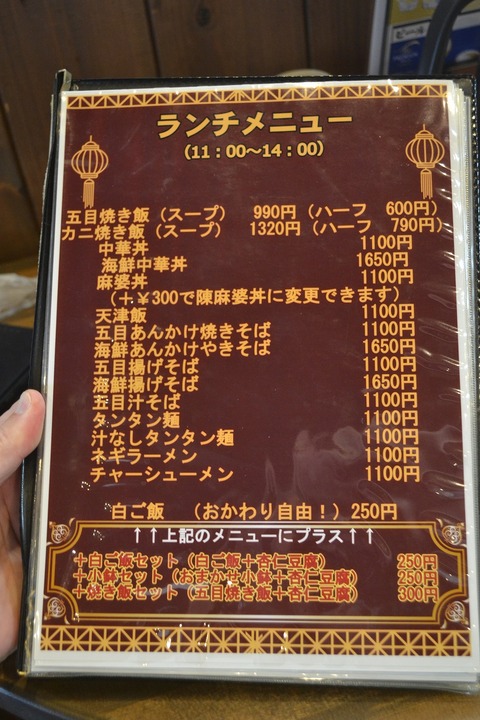 ビール
ランチメニュー
(11：00～14：00)
五目焼き飯（スープ） 990円（ハーフ 600円）
カニ焼き飯（スープ） 1320円（ハーフ 790円）
中華丼 1100円
海鮮中華丼 1650円
麻婆丼 1100円
（＋￥300で陳麻婆丼に変更できます）
天津飯 1100円
五目あんかけ焼きそば 1100円
海鮮あんかけやきそば 1650円
五目揚げそば 1100円
海鮮揚げそば 1650円
五目汁そば 1100円
タンタン麺 1100円
汁なしタンタン麺 1100円
ネギラーメン 1100円
チャーシューメン 1100円
白ご飯 （おかわり自由！）250円
↑↑上記のメニューにプラス↑↑
＋白ご飯セット（白ご飯＋杏仁豆腐） 250円
＋小鉢セット（おまかせ小鉢＋杏仁豆腐） 250円
＋焼き飯セット（五目焼き飯＋杏仁豆腐） 300円